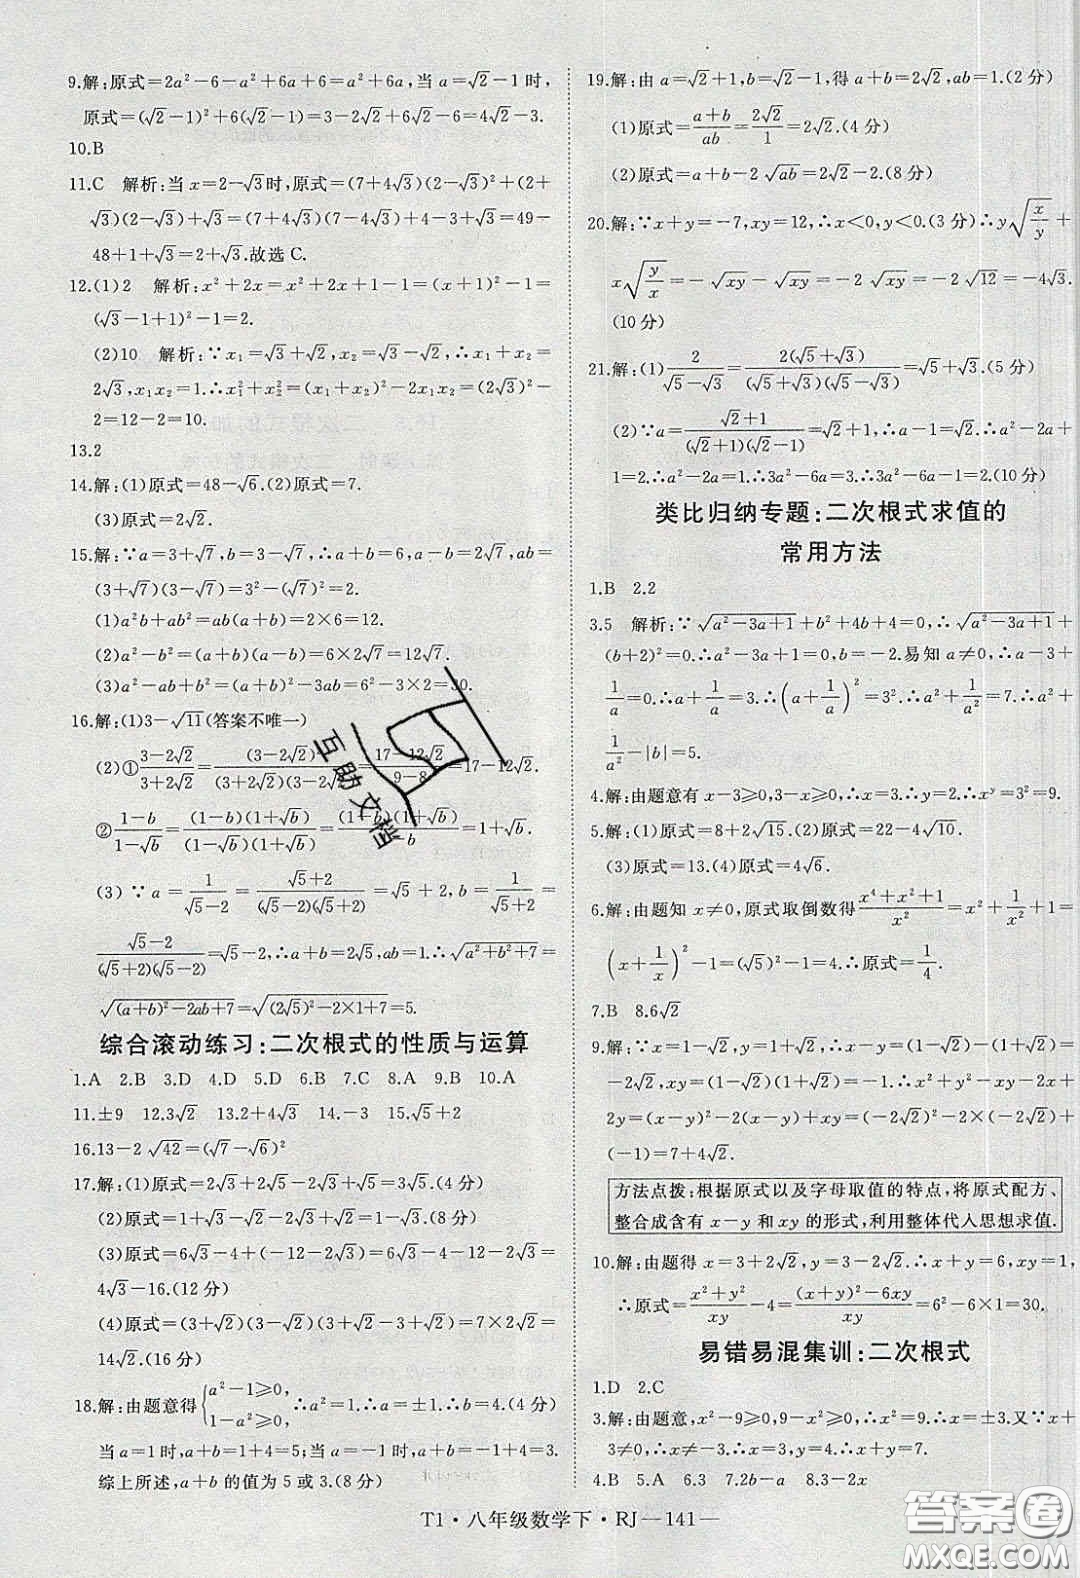 9.解:原式=2a²-6-a²+6a+6=a²+6a,当a=√2-1时,
原式=(√2-1)²+6(√2-1)=3-2√2+6√2-6=4√2-3.
10.B
11.C 解析:当x=2-√3时,原式=(7+4√3)(2-√3)²+(2+
√3)(2-√3)+√3=(7+4√3)(7-4√3)+4-3+√3=49-
48+1+√3=2+√3.故选C.
12.(1)2 解析:x²+2x=x²+2x+1-1=(x+1)²-1=
(√3-1+1)²-1=2.
(2)10 解析:∵x₁=√3+√2,x₂=√3-√2,∴x₁+x₂=
2√3,x₁x₂=1.∴x₁²+x₂²=(x₁+x₂)²-2x₁x₂=(2√3)²-
2=12-2=10.
13.2
14.解:(1)原式=48-√6.(2)原式=7.
(3)原式=2√2.
15.解:∵a=3+√7,b=3-√7,∴a+b=6,a-b=2√7,ab=
(3+√7)(3-√7)=3²-(√7)²=2.
(1)a²b+ab²=ab(a+b)=2×6=12.
(2)a²-b²=(a+b)(a-b)=6×2√7=12√7.
(3)a²-ab+b²=(a+b)²-3ab=6²-3×2=30.
16.解:(1)3-√11(答案不唯一)
(2)①(3-2√2)/(3+2√2)=(3-2√2)²/((3+2√2)(3-2√2))=(17-12√2)/(9-8)=17-12√2.
②(1-b)/(1-√b)=(1-b)(1+√b)/((1-√b)(1+√b))=(1-b)(1+√b)/(1-b)=1+√b.
(3)∵a=1/(√5-2)=(√5+2)/((√5-2)(√5+2))=√5+2,b=1/(√5+2)=
(√5-2)/((√5+2)(√5-2))=√5-2,∴a+b=2√5,ab=1.∴√(a²+b²+7)=
√((a+b)²-2ab+7)=√((2√5)²-2×1+7)=5.
综合滚动练习:二次根式的性质与运算
1.A 2.B 3.D 4.D 5.D 6.B 7.C 8.A 9.B 10.A
11.±9 12.3√2 13.2+4√3 14.-3 15.√5+2
16.13-2√42=(√7-√6)²
17.解:(1)原式=2√3+2√2-√2-√3=√3+√2.(4分)
(2)原式=1+√9-√4=1+3-2=2.(8分)
(3)原式=6√3-4+(-12-2√3)=6√3-4-12-2√3=
4√3-16.(12分)
(4)原式=(2√3+√2)(3√3-√2+3√2-√3)=
14√2.(16分)
18.解:由题意得{a²-1≥0,1-a²≥0,∴a²=1.∴a=±1.∴b=4.(4分)
当a=1时,a+b=1+4=5;当a=-1时,a+b=-1+4=3.
综上所述,a+b的值为5或3.(8分)
19.解:由a=√2+1,b=√2-1,得a+b=2√2,ab=1.(2分)
(1)原式=(a+b)/ab=2√2/1=2√2.(4分)
(2)原式=a+b-2√ab=2√2-2.(8分)
20.解:∵x+y=-7,xy=12,∴x<0,y<0.(3分)∴y√(x/y)+
x√(y/x)=-√xy-√xy=-2√xy=-2√12=-4√3.
(10分)
21.解:(1)2/(√5-√3)=2(√5+√3)/((√5+√3)(√5-√3))=√5+√3.(5分)
(2)∵a=(√2+1)/((√2+1)(√2-1))=√2+1,∴a-1=√2.∴a²-2a+
1=2.∴a²-2a=1.∴3a²-6a=3.∴3a²-6a-1=2.(10分)
类比归纳专题:二次根式求值的
常用方法
1.B 2.2
3.5 解析:∵√(a²-3a+1)+b²+4b+4=0,∴√(a²-3a+1)+
(b+2)²=0.∴a²-3a+1=0,b=-2.易知a≠0,∴a-3+
1/a=0.∴a+1/a=3.∴(a+1/a)²=3².∴a²+1/a²=7.∴a²+
1/a²-|b|=5.
4.解:由题意有x-3≥0,3-x≥0,∴x=3.∴y=2.∴xʸ=3²=9.
5.解:(1)原式=8+2√15.(2)原式=22-4√10.
(3)原式=13.(4)原式=4√6.
6.解:由题知x≠0,原式取倒数得(x⁴+x²+1)/x²=x²+1/x²+1=
(x+1/x)²-1=(√5)²-1=4.∴原式=1/4.
7.B 8.6√2
9.解:∵x=1-√2,y=1+√2,∴x-y=(1-√2)-(1+√2)=
-2√2,xy=(1-√2)(1+√2)=-1.∴x²+y²-xy-2x+
2y=(x-y)²-2(x-y)+xy=(-2√2)²-2×(-2√2)+
(-1)=7+4√2.
方法点拨:根据原式以及字母取值的特点,将原式配方、
整合成含有x-y和xy的形式,利用整体代入思想求值.
10.解:由题得x=3+2√2,y=3-2√2.∴x+y=6,xy=1,
∴原式=(x²+y²)/xy-4=((x+y)²-6xy)/xy=6²-6×1=30.
易错易混集训:二次根式
1.D 2.C
3.解:由题意,x²-9≥0,9-x²≥0,∴x²=9.∴x=±3.又∵x+
3≠0,∴x≠-3.∴x=3.∴y=4/6=2/3.∴7x+6y=25.∴√
4.B 5.A 6.3 7.2b-a 8.3-2x
T1·八年级数学下·RJ—141—
互助文档
答案圈
MXQE.COM